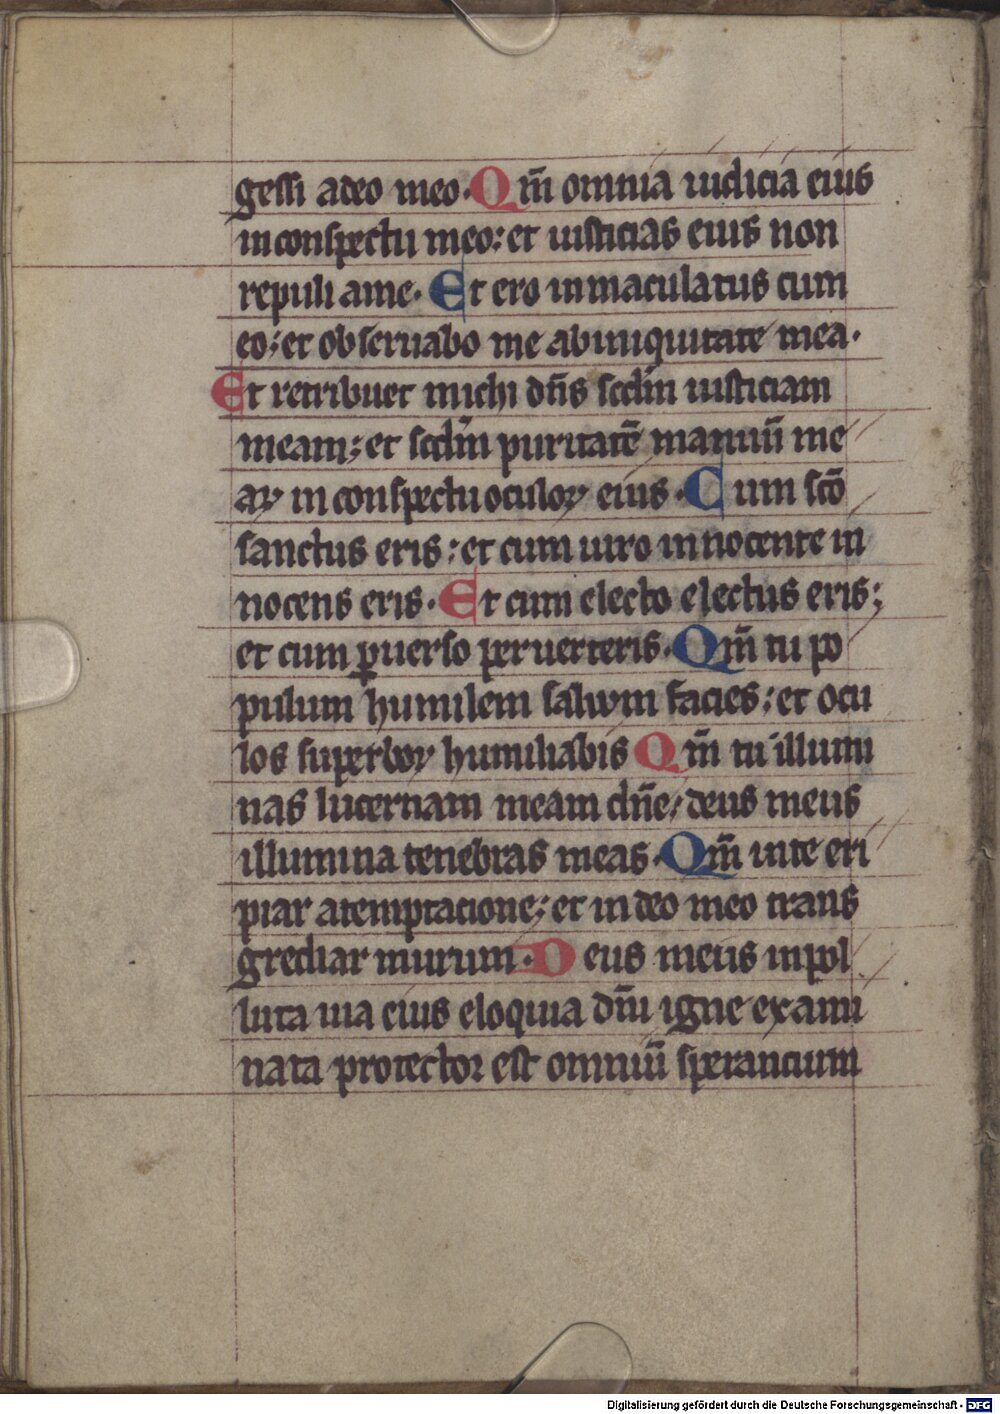 gessi adeo meo. Qm̄ omnia iudicia eius
in conspectu meo: et iusticias eius non
repuli a me. Et ero inmaculatus cum
eo: et obseruabo me ab iniquitate mea.
Et retribuet michi dn̄s scd̄m iusticiam
meam: et scd̄m puritatē manuū me
aꝝ in conspectu oculoꝝ eius. Cum scō
sanctus eris: et cum uiro innocente in
nocens eris. Et cum electo electus eris:
et cum ꝑuerso peruerteris. Qm̄ tu po
pulum humilem saluum facies: et ocu
los superboꝝ humiliabis Qm̄ tu illumi
nas lucernam meam dn̄e: deus meus
illumina tenebras meas. Qm̄ in te eri
piar a temptatione: et in deo meo trans
grediar murum. Deus meus inpol
luta uia eius eloquia dn̄i igne exami
nata protector est omniū sperantium
Digitalisierung gefördert durch die Deutsche Forschungsgemeinschaft - DFG